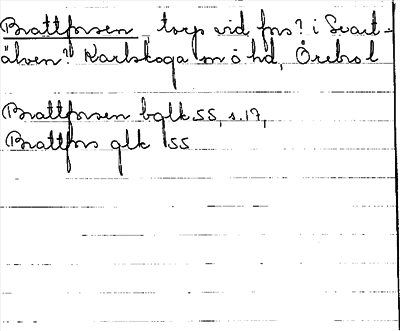 Brattforsen torp vid fors? i Svart-
älven? Karlskoga sn ö hd, Örebro l
Brattforsen bglk SS, s. 17,
Brattfors glk SS